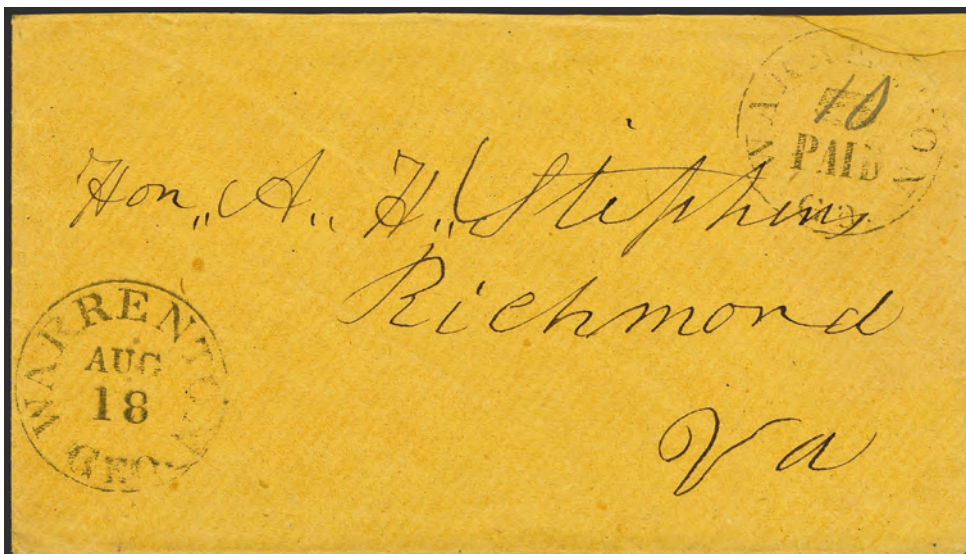 WARRENTON
10
PAID
GEO.
Hon,, A,, H,, Stephens
Richmond
Va
WARRENTON
AUG
18
GEO.